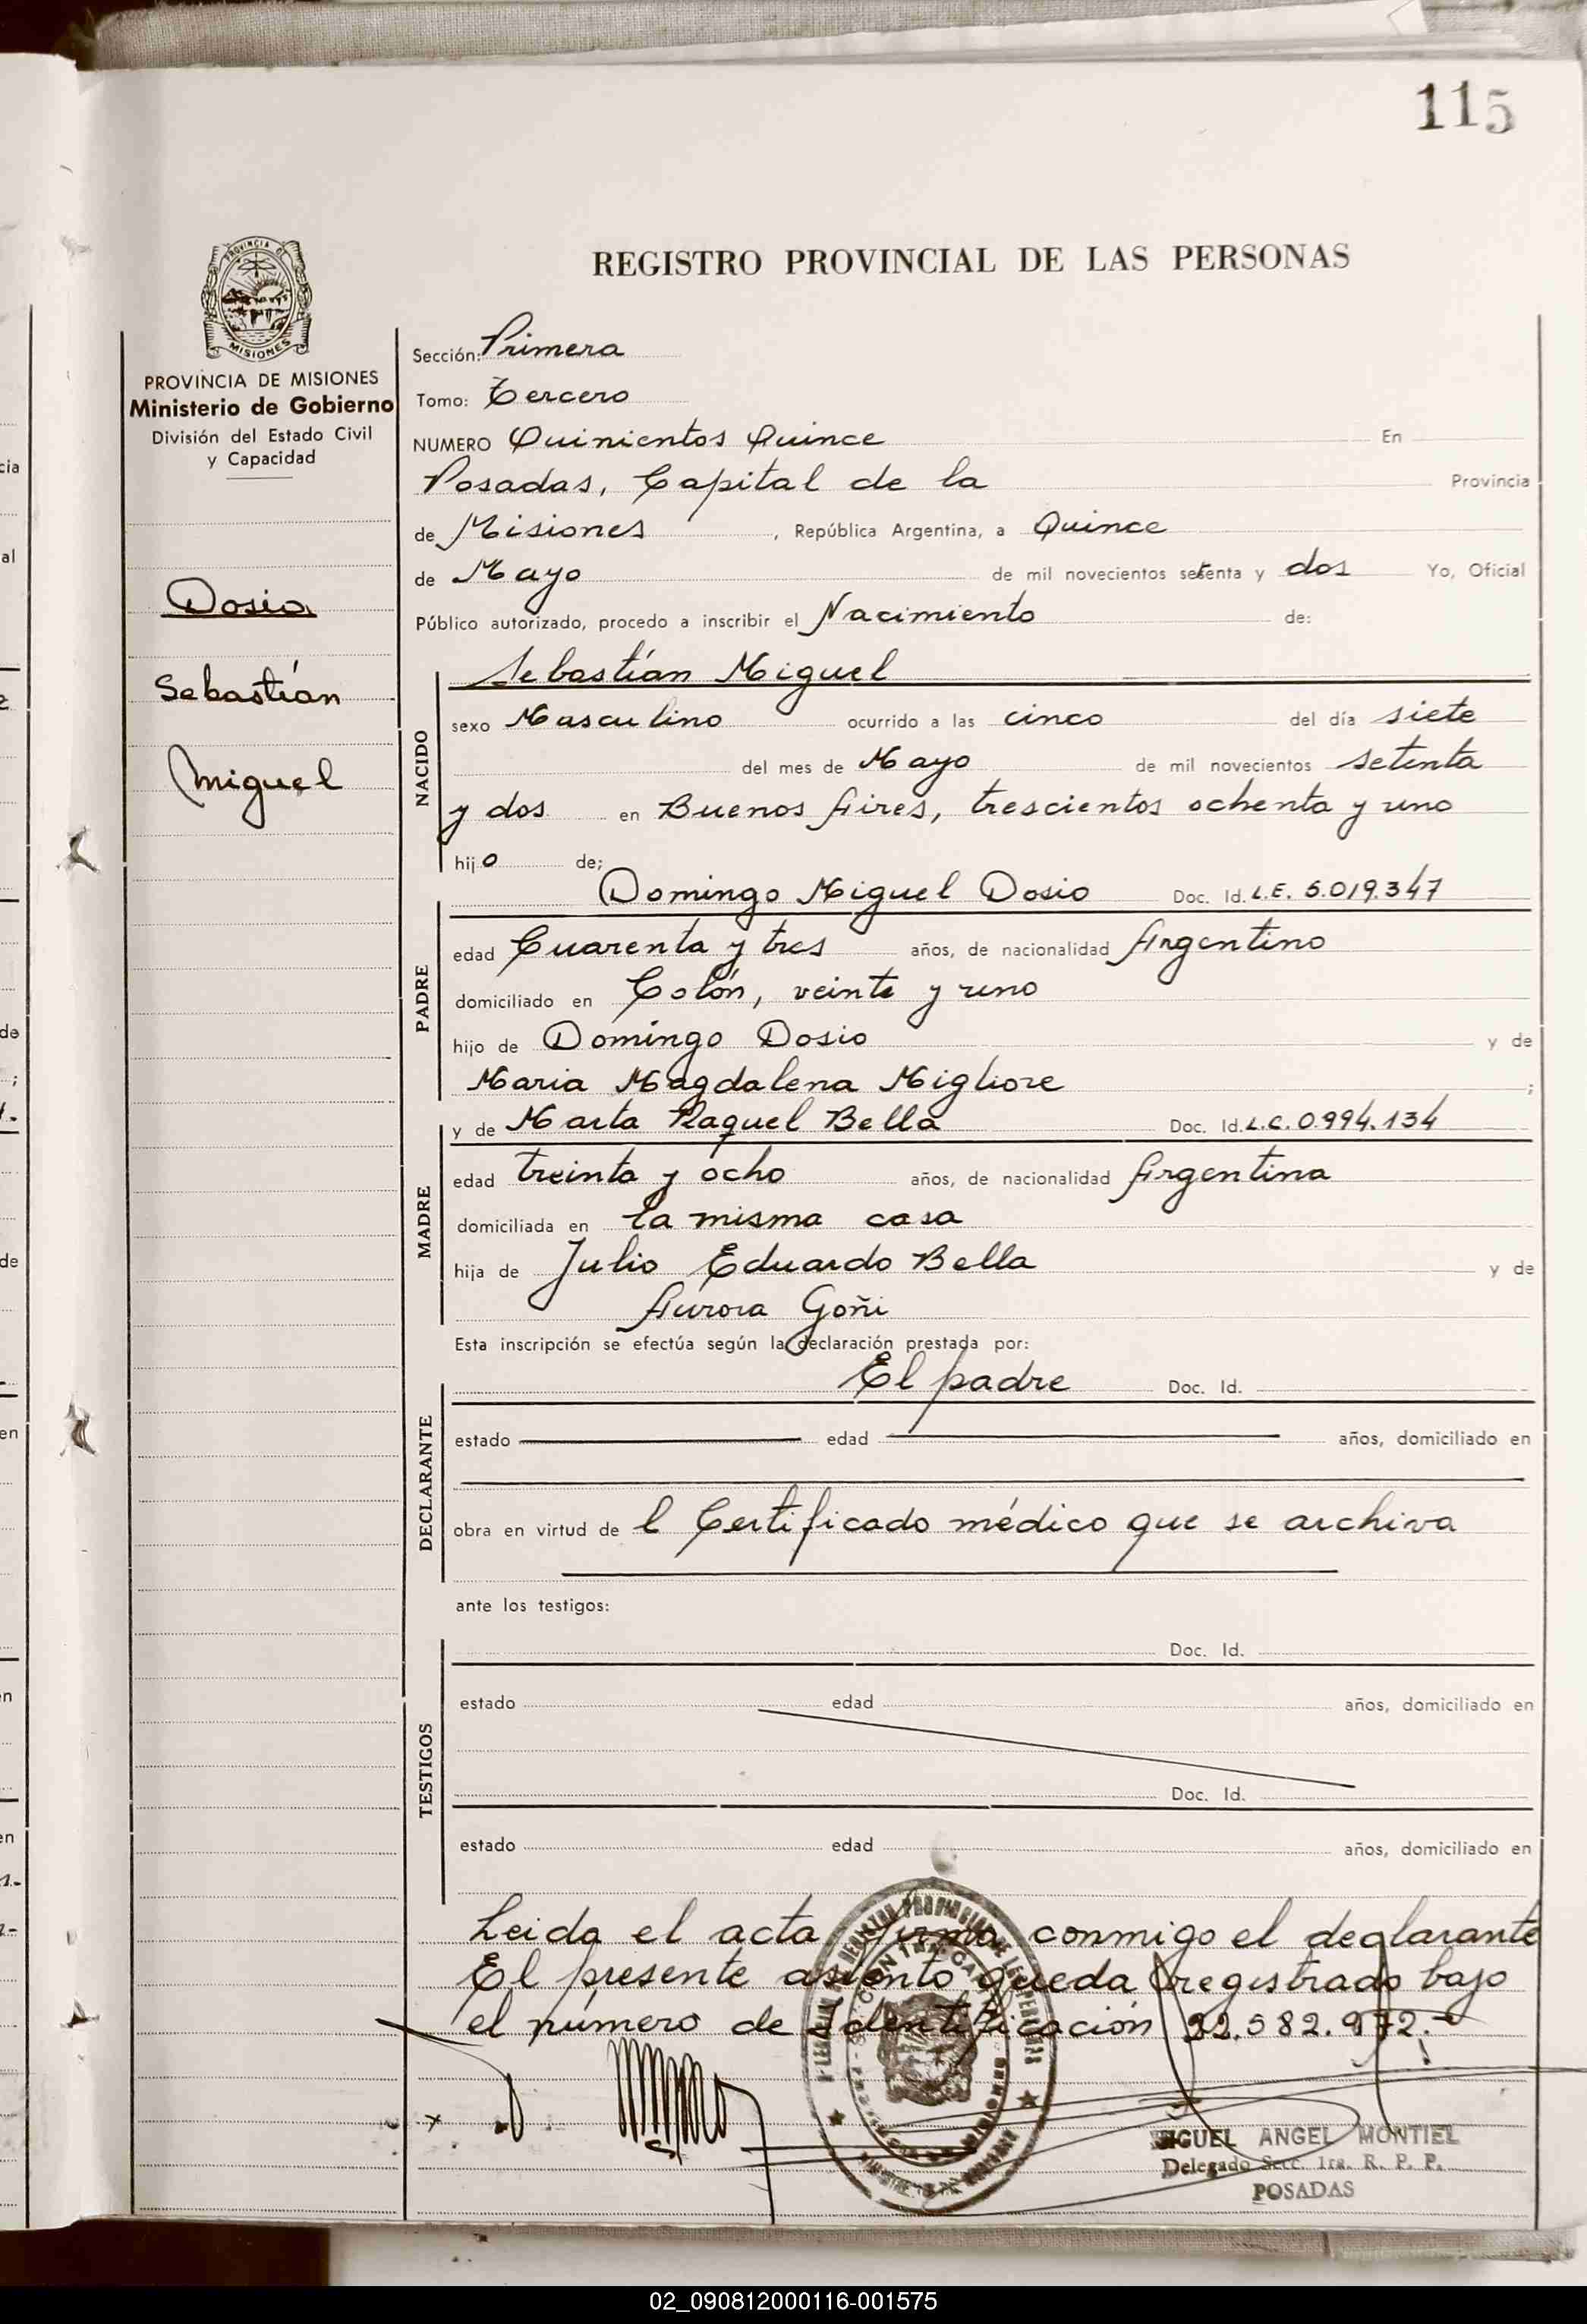 115
REGISTRO PROVINCIAL DE LAS PERSONAS
PROVINCIA DE
MISIONES
PROVINCIA DE MISIONES
Ministerio de Gobierno
División del Estado Civil
y Capacidad
Dosio
Sebastián
Miguel
Sección: Primera
Tomo: Tercero
NUMERO Quinientos Quince En
Posadas, Capital de la Provincia
de Misiones, República Argentina, a Quince
de Mayo de mil novecientos setenta y dos Yo, Oficial
Público autorizado, procedo a inscribir el Nacimiento de:
NACIDO
Sebastián Miguel
sexo Masculino ocurrido a las cinco del día siete
del mes de Mayo de mil novecientos setenta
y dos en Buenos Aires, trescientos ochenta y uno
hijo de;
PADRE
Domingo Miguel Dosio Doc. Id. L.E. 5.019.347
edad Cuarenta y tres años, de nacionalidad Argentino
domiciliado en Colón, veinte y uno
hijo de Domingo Dosio y de
Maria Magdalena Migliore ;
MADRE
y de Marta Raquel Bella Doc. Id. L.C. 0.994.134
edad treinta y ocho años, de nacionalidad Argentina
domiciliada en la misma casa
hija de Julio Eduardo Bella y de
Aurora Goñi
Esta inscripción se efectúa según la declaración prestada por:
DECLARANTE
El padre Doc. Id.
estado edad años, domiciliado en
obra en virtud de l Certificado médico que se archiva
ante los testigos:
TESTIGOS
Doc. Id.
estado edad años, domiciliado en
Doc. Id.
estado edad años, domiciliado en
Leida el acta firma conmigo el declarante
El presente asiento queda registrado bajo
el número de Identificación 22.582.972.-
MIGUEL ANGEL MONTIEL
Delegado Secc. 1ra. R. P. P.
POSADAS
02_090812000116-001575